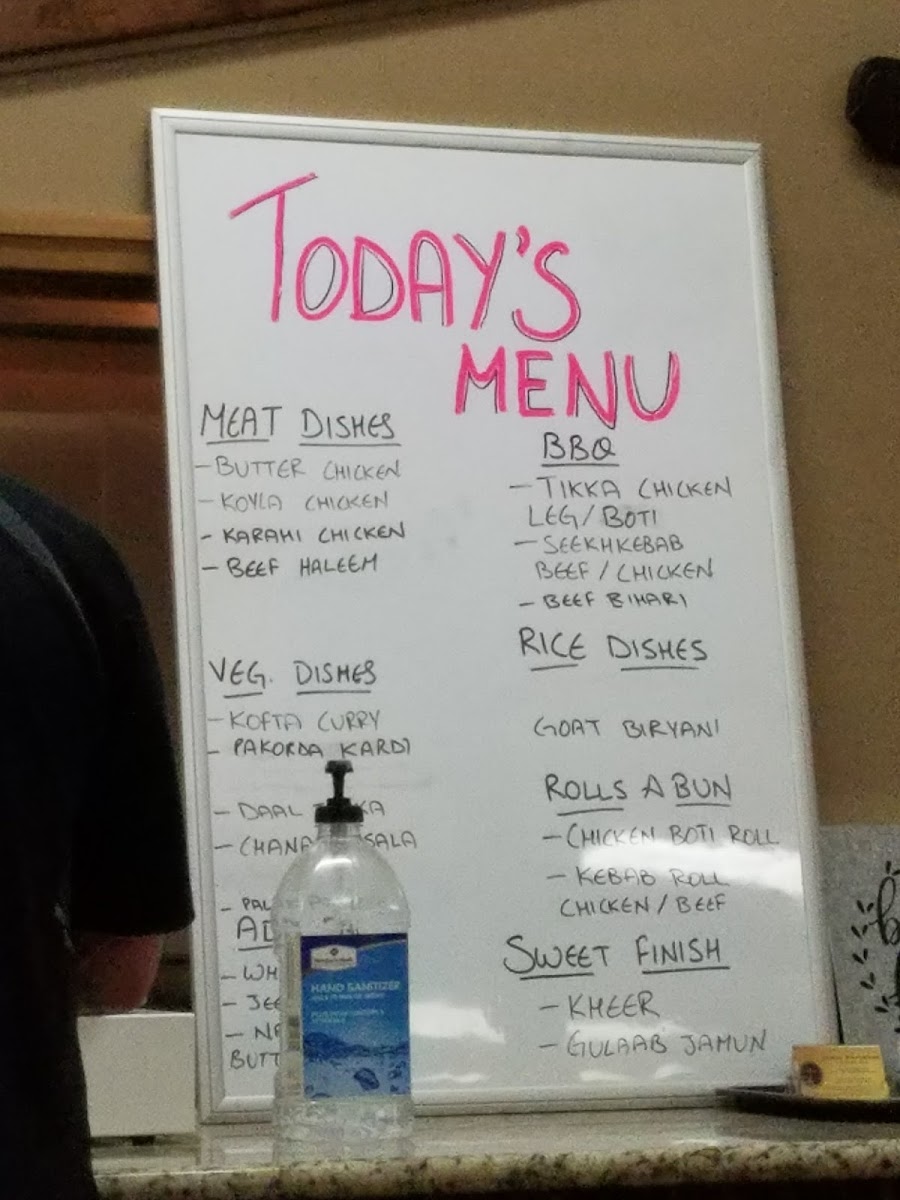 TODAY'S
MENU
MEAT DISHES
- BUTTER CHICKEN
- KOYLA CHICKEN
- KARAHI CHICKEN
- BEEF HALEEM
VEG. DISHES
- KOFTA CURRY
- PAKORDA KARDI
- DAAL
- CHANA
BBQ
- TIKKA CHICKEN
LEG/BOTI
- SEEKHKEBAB
BEEF/CHICKEN
- BEEF BIHARI
RICE DISHES
GOAT BIRYANI
ROLLS A BUN
- CHICKEN BOTI ROLL
- KEBAB ROLL
CHICKEN/BEEF
SWEET FINISH
- KHEER
- GULAAB JAMUN
HAND SANITIZER